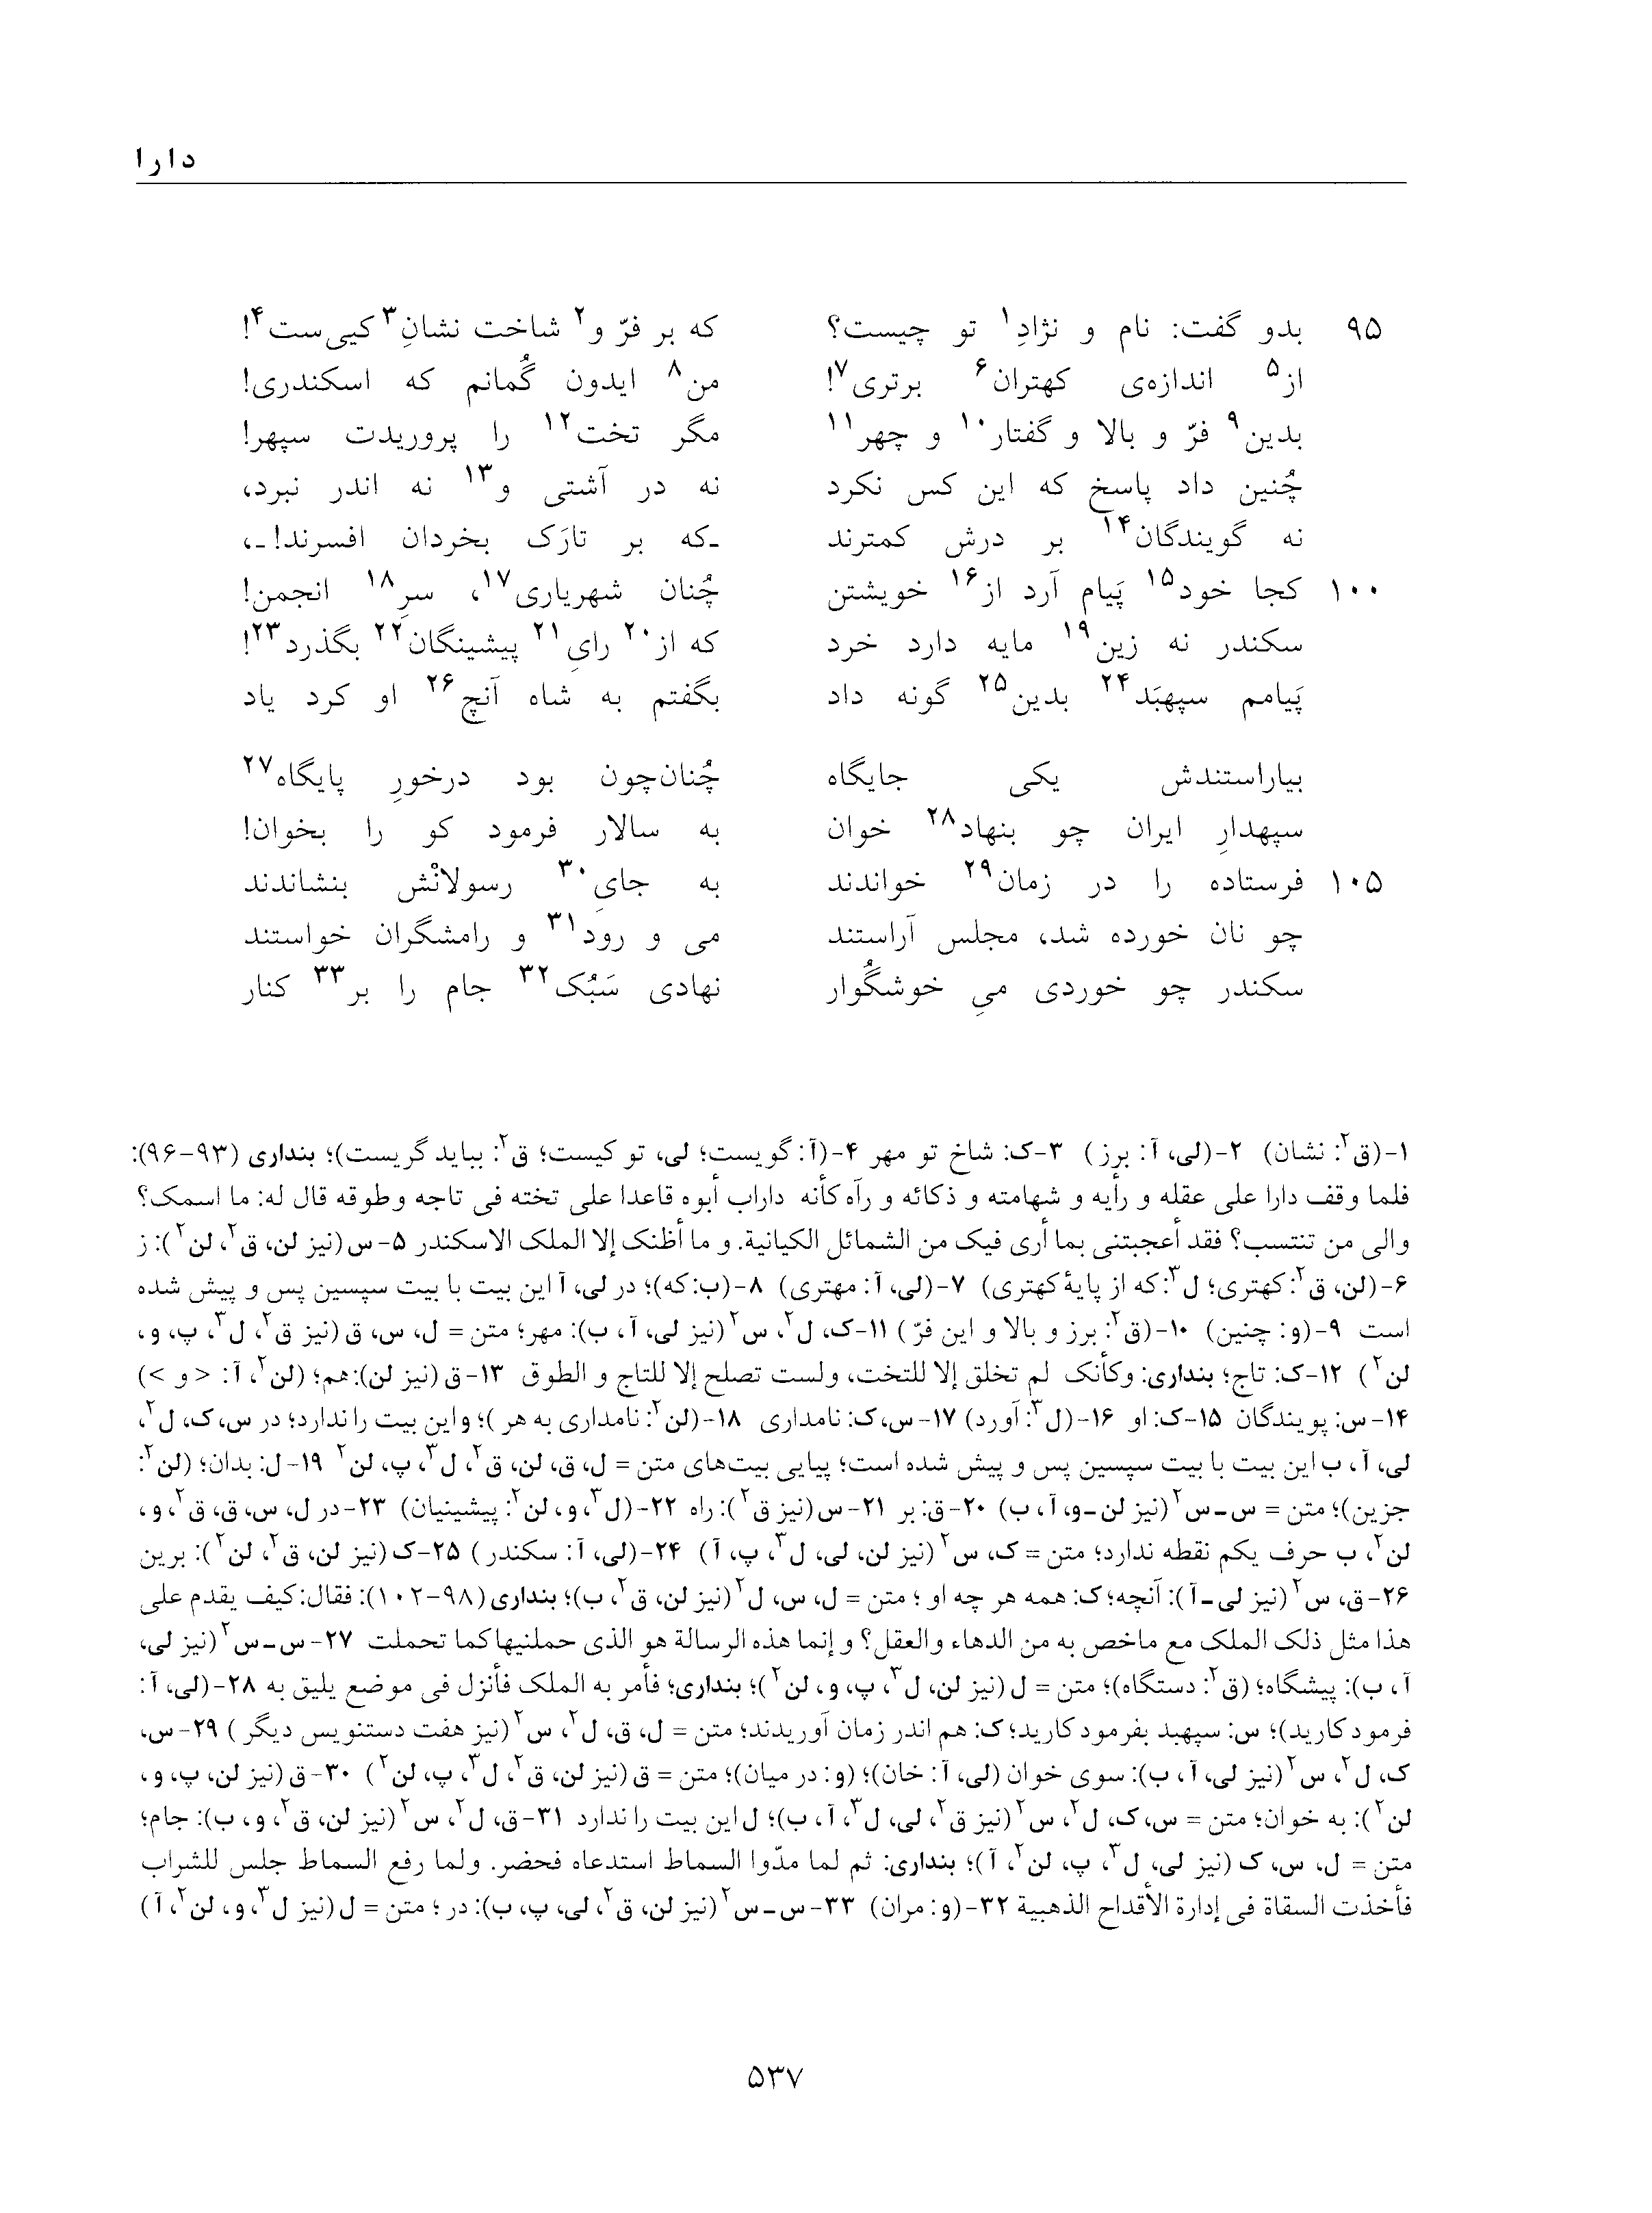 دارا
۹۵ بدو گفت: نام و نژادِ۱ تو چیست؟ که بر فرّ و۲ شاخت نشانِ۳ کیی‌ست۴!
از۵ اندازه‌ی کهتران۶ برتری۷! من۸ ایدون گُمانم که اسکندری!
بدین۹ فرّ و بالا و گفتار۱۰ و چهر۱۱ مگر تخت۱۲ را پروریدت سپهر!
چُنین داد پاسخ که این کس نکرد نه در آشتی و۱۳ نه اندر نبرد،
نه گویندگان۱۴ بر درش کمترند ـ‌که بر تارَک بخردان افسرند!ـ،
۱۰۰ کجا خود۱۵ پَیام آرد از۱۶ خویشتن چُنان شهریاری۱۷، سرِ۱۸ انجمن!
سکندر نه زین۱۹ مایه دارد خرد که از۲۰ رایِ۲۱ پیشینگان۲۲ بگذرد۲۳!
پَیامم سپهبَد۲۴ بدین۲۵ گونه داد بگفتم به شاه آنچ۲۶ او کرد یاد
بیاراستندش یکی جایگاه چُنان‌چون بود درخورِ پایگاه۲۷
سپهدارِ ایران چو بنهاد۲۸ خوان به سالار فرمود کو را بخوان!
۱۰۵ فرستاده را در زمان۲۹ خواندند به جایِ۳۰ رسولانْش بنشاندند
چو نان خورده شد، مجلس آراستند می و رود۳۱ و رامشگران خواستند
سکندر چو خوردی میِ خوشگُوار نهادی سَبُک۳۲ جام را بر۳۳ کنار
۱-(ق۲: نشان) ۲-(لی، آ: برز) ۳-ک: شاخ تو مهر ۴-(آ: گویست؛ لی، تو کیست؛ ق۲: بباید گریست)؛ بنداری (۹۳-۹۶):
فلما وقف دارا علی عقله و رأیه و شهامته و ذکائه و رآه کأنه داراب أبوه قاعدا علی تخته فی تاجه وطوقه قال له: ما اسمک؟
والی من تنتسب؟ فقد أعجبتنی بما أری فیک من الشمائل الکیانیة. و ما أظنک إلا الملک الاسکندر ۵-س (نیز لن، ق۲، لن۲): ز
۶-(لن، ق۲: کهتری؛ ل۳: که از پایهٔ کهتری) ۷-(لی، آ: مهتری) ۸-(ب: که)؛ در لی، آ این بیت با بیت سپسین پس و پیش شده
است ۹-(و: چنین) ۱۰-(ق۲: برز و بالا و این فرّ) ۱۱-ک، ل۲، س۲ (نیز لی، آ، ب): مهر؛ متن = ل، س، ق (نیز ق۲، ل۳، پ، و،
لن۲) ۱۲-ک: تاج؛ بنداری: وکأنک لم تخلق إلا للتخت، ولست تصلح إلا للتاج و الطوق ۱۳-ق (نیز لن): هم؛ (لن۲، آ: <و>)
۱۴-س: پویندگان ۱۵-ک: او ۱۶-(ل۳: آورد) ۱۷-س، ک: نامداری ۱۸-(لن۲: نامداری به هر)؛ و این بیت را ندارد؛ در س، ک، ل۲،
لی، آ، ب این بیت با بیت سپسین پس و پیش شده است؛ پیایی بیت‌های متن = ل، ق، لن، ق۲، ل۳، پ، لن۲ ۱۹-ل: بدان؛ (لن۲:
جزین)؛ متن = س-س۲ (نیز لن-و، آ، ب) ۲۰-ق: بر ۲۱-س (نیز ق۲): راه ۲۲-(ل۳، و، لن۲: پیشینیان) ۲۳-در ل، س، ق، ق۲، و،
لن۲، ب حرف یکم نقطه ندارد؛ متن = ک، س۲ (نیز لن، لی، ل۳، پ، آ) ۲۴-(لی، آ: سکندر) ۲۵-ک (نیز لن، ق۲، لن۲): برین
۲۶-ق، س۲ (نیز لی-آ): آنچه؛ ک: همه هر چه او؛ متن = ل، س، ل۲ (نیز لن، ق۲، ب)؛ بنداری (۹۸-۱۰۲): فقال: کیف یقدم علی
هذا مثل ذلک الملک مع ماخص به من الدهاء والعقل؟ و إنما هذه الرسالة هو الذی حملنیها کما تحملت ۲۷-س-س۲ (نیز لی،
آ، ب): پیشگاه؛ (ق۲: دستگاه)؛ متن = ل (نیز لن، ل۳، پ، و، لن۲)؛ بنداری؛ فأمر به الملک فأنزل فی موضع یلیق به ۲۸-(لی، آ:
فرمود کارید)؛ س: سپهبد بفرمود کارید؛ ک: هم اندر زمان آوریدند؛ متن = ل، ق، ل۲، س۲ (نیز هفت دستنویس دیگر) ۲۹-س،
ک، ل۲، س۲ (نیز لی، آ، ب): سوی خوان (لی، آ: خان)؛ (و: در میان)؛ متن = ق (نیز لن، ق۲، ل۳، پ، لن۲) ۳۰-ق (نیز لن، پ، و،
لن۲): به خوان؛ متن = س، ک، ل۲، س۲ (نیز ق۲، لی، ل۳، آ، ب)؛ ل این بیت را ندارد ۳۱-ق، ل۲، س۲ (نیز لن، ق۲، و، ب): جام؛
متن = ل، س، ک (نیز لی، ل۳، پ، لن۲، آ)؛ بنداری: ثم لما مدّوا السماط استدعاه فحضر. ولما رفع السماط جلس للشراب
فأخذت السقاة فی إدارة الأقداح الذهبیة ۳۲-(و: مران) ۳۳-س-س۲ (نیز لن، ق۲، لی، پ، ب): در؛ متن = ل (نیز ل۳، و، لن۲، آ)
۵۳۷